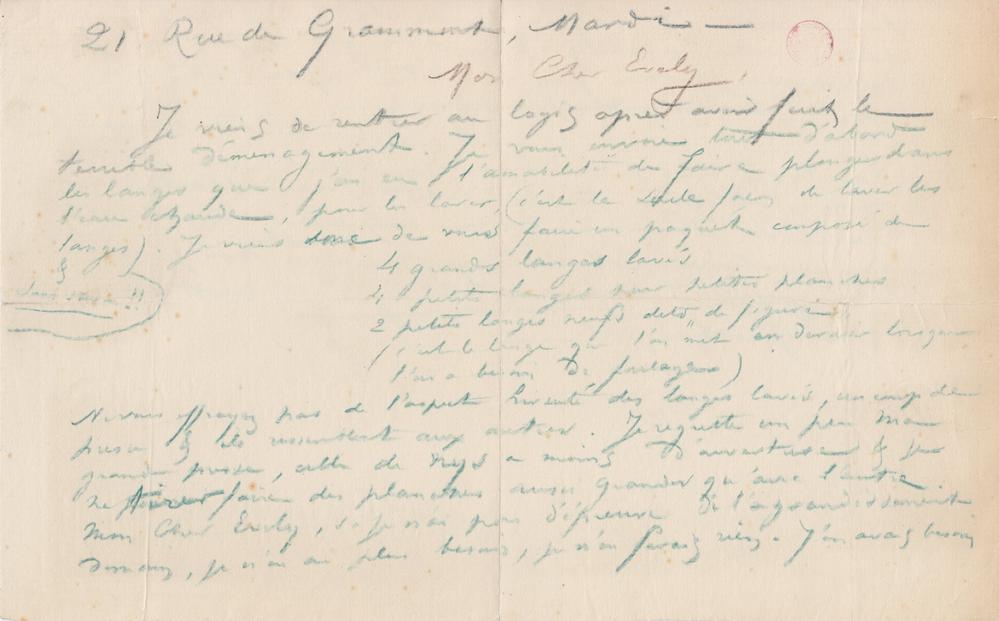 21 Rue de Grammont, Mardi —
Mon Cher Evely,
Je viens de rentrer au logis après avoir fait le
terrible déménagement. Je vous envoie tout d'abord
les langes que j'ai eu l'amabilité de faire plonger dans
l'eau chaude, pour les laver, (c'est la seule façon de laver les
langes). Je viens donc de vous faire un paquet composé de
&
sans savon!!
4 grands langes lavés
4 petits langes pour petites planches
2 petits langes neufs dits "de figure"
(c'est le lange que l'on met en dernier lorsque
l'on a besoin de foulage)
Ne vous effrayez pas de l'aspect des langes lavés, un coup de
presse & ils ressemblent aux autres. Je regrette un peu ma
grande presse, celle de Nys a moins d'ouverture & je
ne faire des planches aussi grandes qu'avec l'autre.
Mon Cher Evely, si je n'ai pas d'épreuve de l'agrandissement
demain, je n'en ai plus besoin, je n'en ferais rien. J'en avais besoin